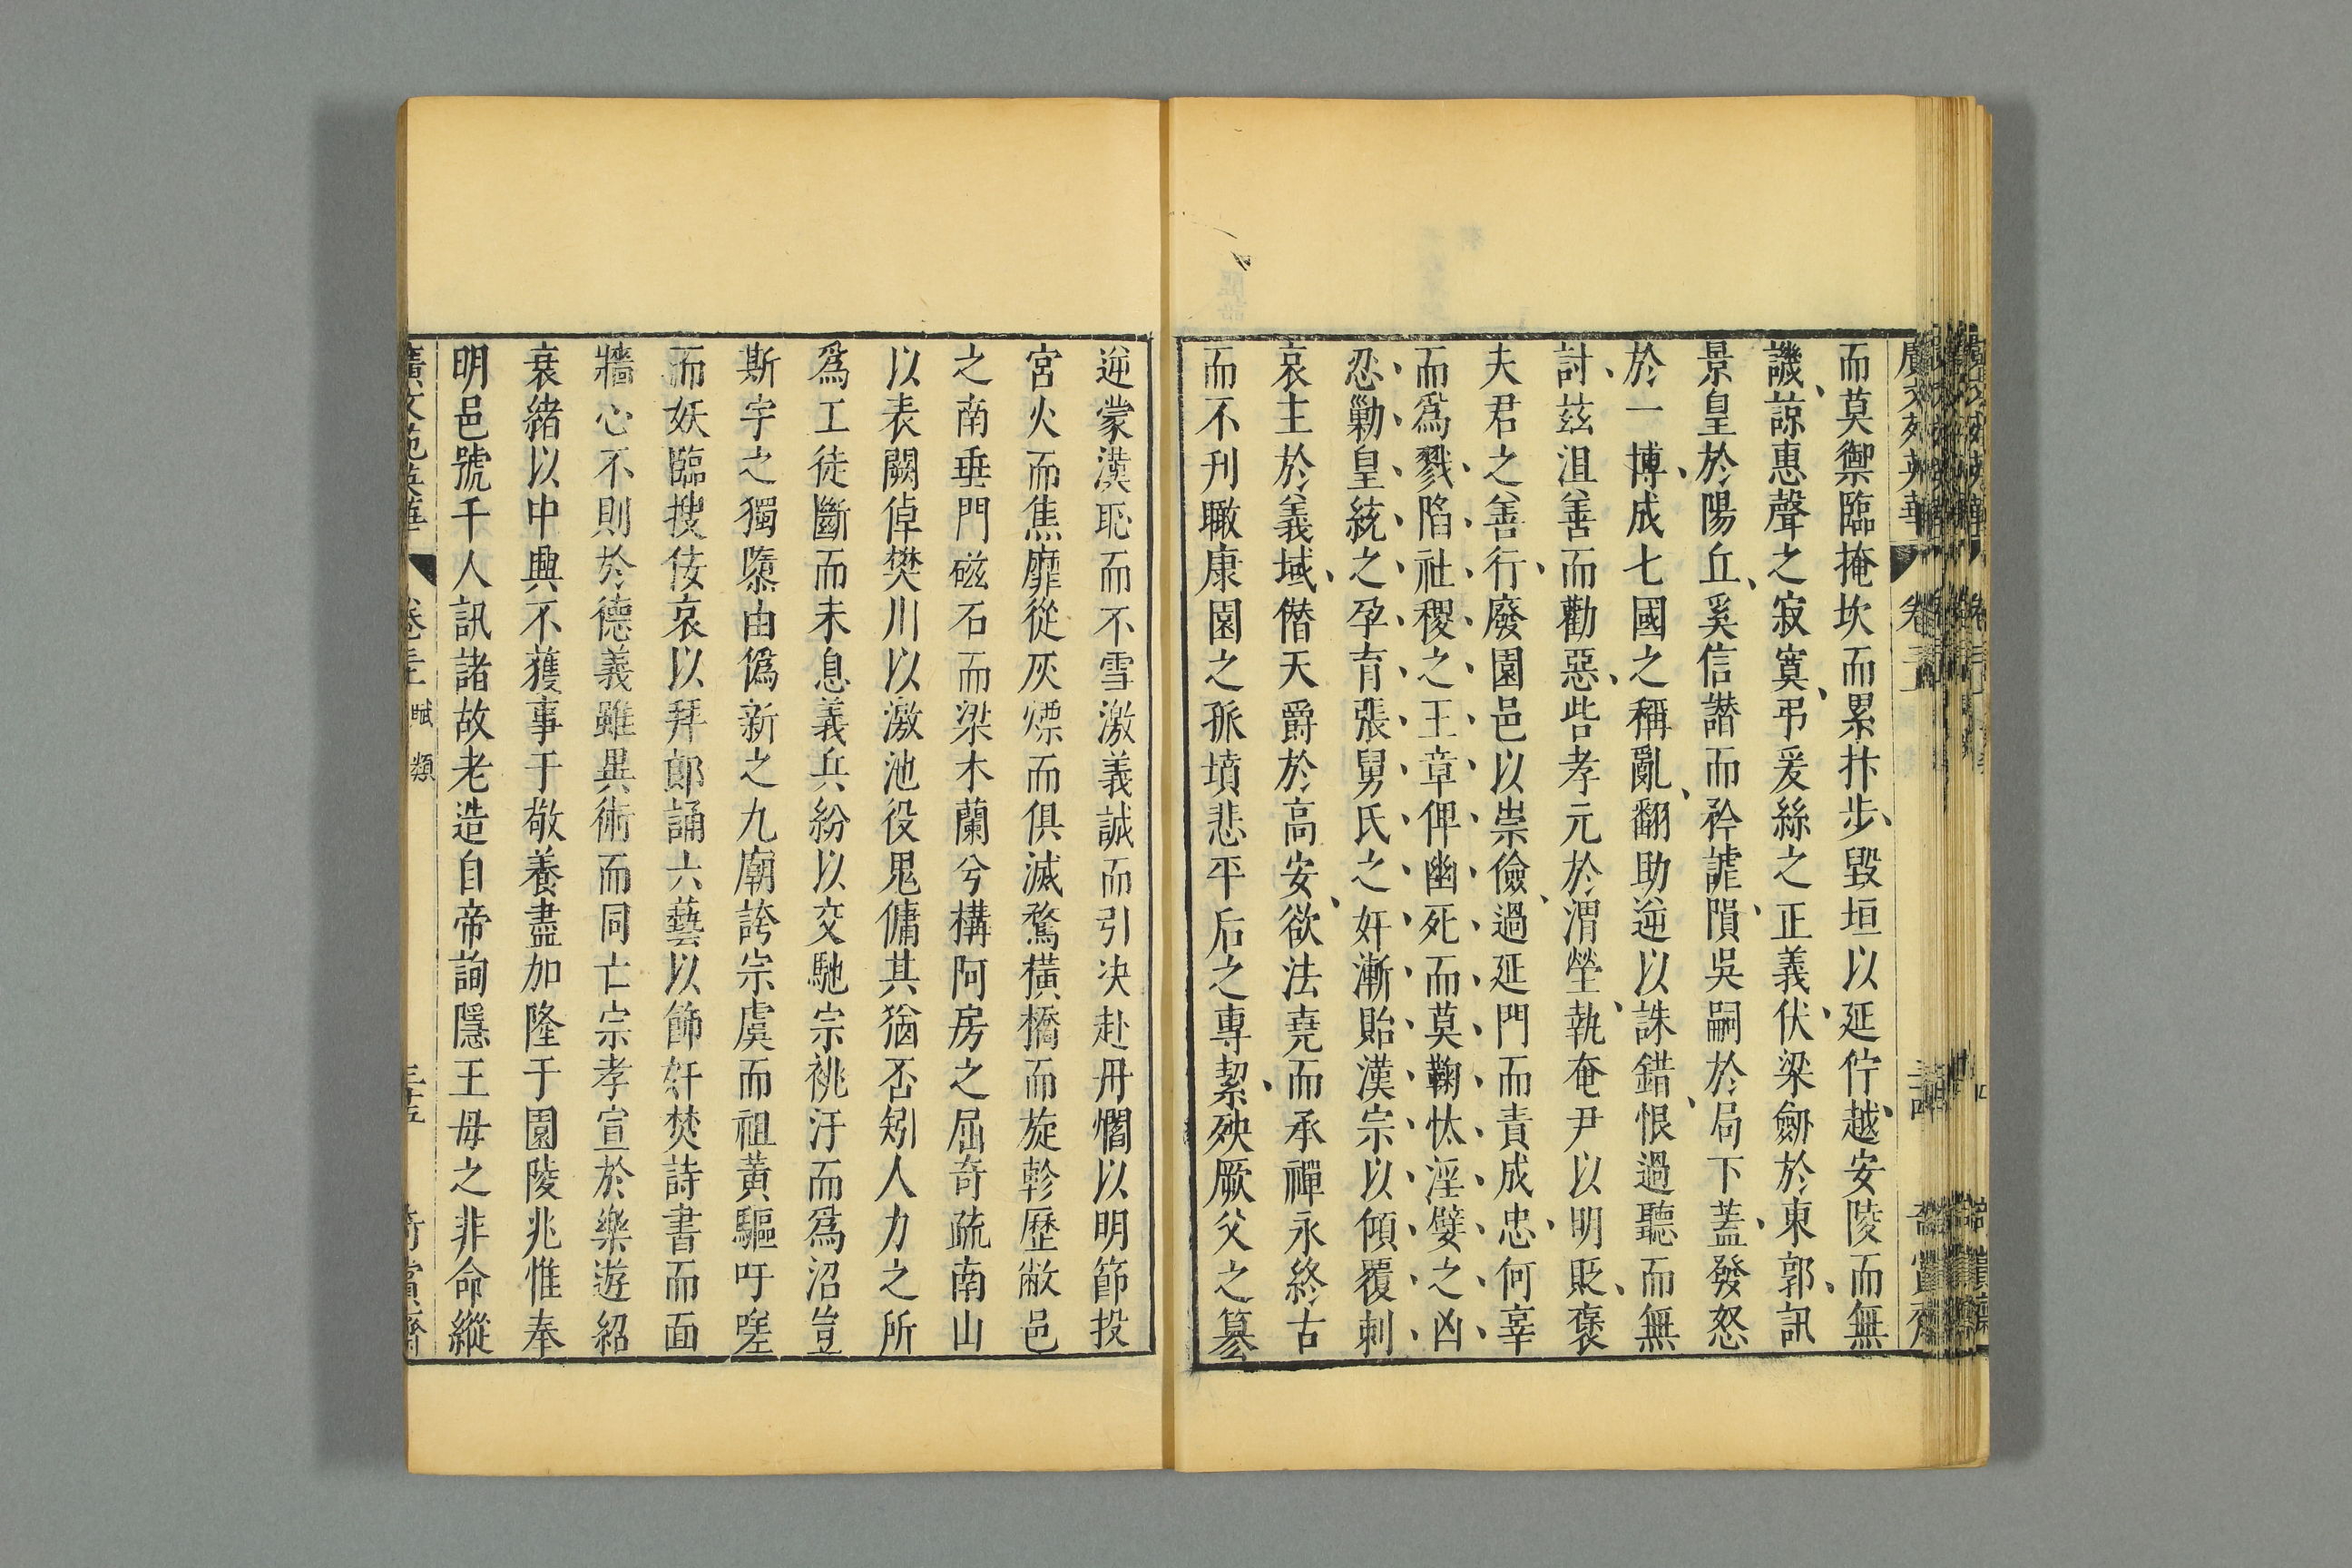 而莫禦臨掩坎而累抃步毀垣以延佇越安陵而無
譏諒惠聲之寂寞弔爰絲之正義伏梁劒於東郭訊
景皇於陽丘奚信譖而矜謔隕吳嗣於局下蓋發怒
於一博成七國之稱亂翻助逆以誅錯恨過聽而無
討茲沮善而勸惡呰孝元於渭塋執奄尹以明貶褒
夫君之善行廢園邑以崇儉過延門而責成忠何辜
而爲戮陷社稷之王章俾幽死而莫鞠忲淫嬖之凶
忍勦皇統之孕育張舅氏之奸漸貽漢宗以傾覆刺
哀主於義域僭天爵於高安欲法堯而承禪永終古
而不刋瞰康園之孤墳悲平后之專絜殃厥父之篡
逆蒙漢恥而不雪激義誠而引決赴丹爓以明節投
宮火而焦靡從灰熛而俱滅騖橫橋而旋軫歷敝邑
之南垂門磁石而梁木蘭兮構阿房之屈奇疏南山
以表闕倬樊川以激池役鬼傭其猶否矧人力之所
爲工徒斷而未息義兵紛以交馳宗祧汙而爲沼豈
斯宇之獨隳由僞新之九廟誇宗虞而祖黃驅吁嗟
而妖臨搜佞哀以拜郎誦六藝以飾奸焚詩書而面
牆心不則於德義雖異術而同亡宗孝宣於樂遊紹
衰緒以中興不獲事于敬養盡加隆于園陵兆惟奉
明邑號千人訊諸故老造自帝詢隱王母之非命縱
廣文苑英華 卷三 賦類 三十五 奇賞齋